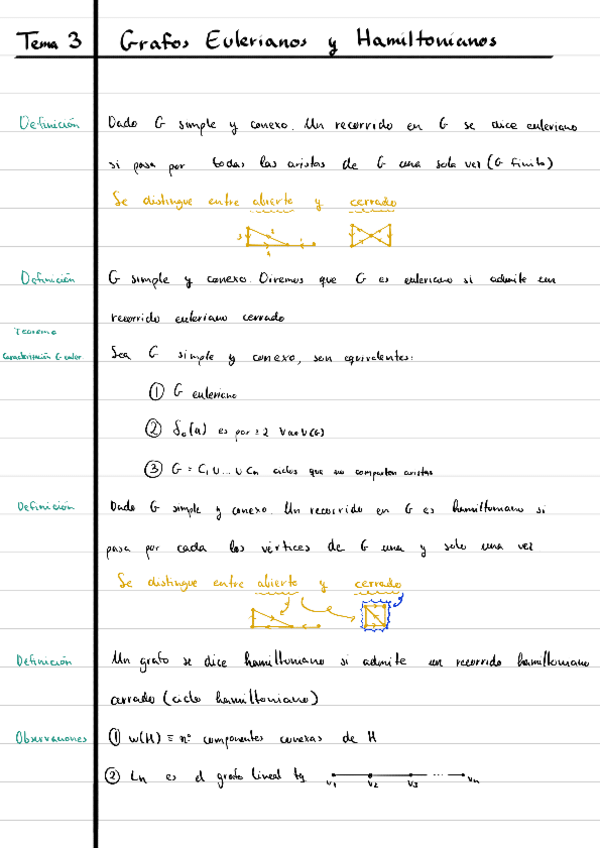 Tema 3 Grafos Eulerianos y Hamiltonianos
Definición Dado G simple y conexo. Un recorrido en G se dice euleriano
si pasa por todas las aristas de G una sola vez (G finito)
Se distingue entre abierto y cerrado
3 2 1
4
Definición G simple y conexo. Diremos que G es euleriano si admite un
recorrido euleriano cerrado
Teorema
Caracterización G euler Sea G simple y conexo, son equivalentes:
① G euleriano
② es par
③ G = C₁ ∪ ... ∪ Cn ciclos que no comparten aristas
Definición Dado G simple y conexo. Un recorrido en G es hamiltoniano si
pasa por cada los vértices de G una y solo una vez
Se distingue entre abierto y cerrado
Definición Un grafo se dice hamiltoniano si admite un recorrido hamiltoniano
cerrado (ciclo hamiltoniano)
Observaciones ① w(H) ≡ nº componentes conexas de H
② Ln es el grafo lineal tq V₁ V₂ V₃ ... Vn